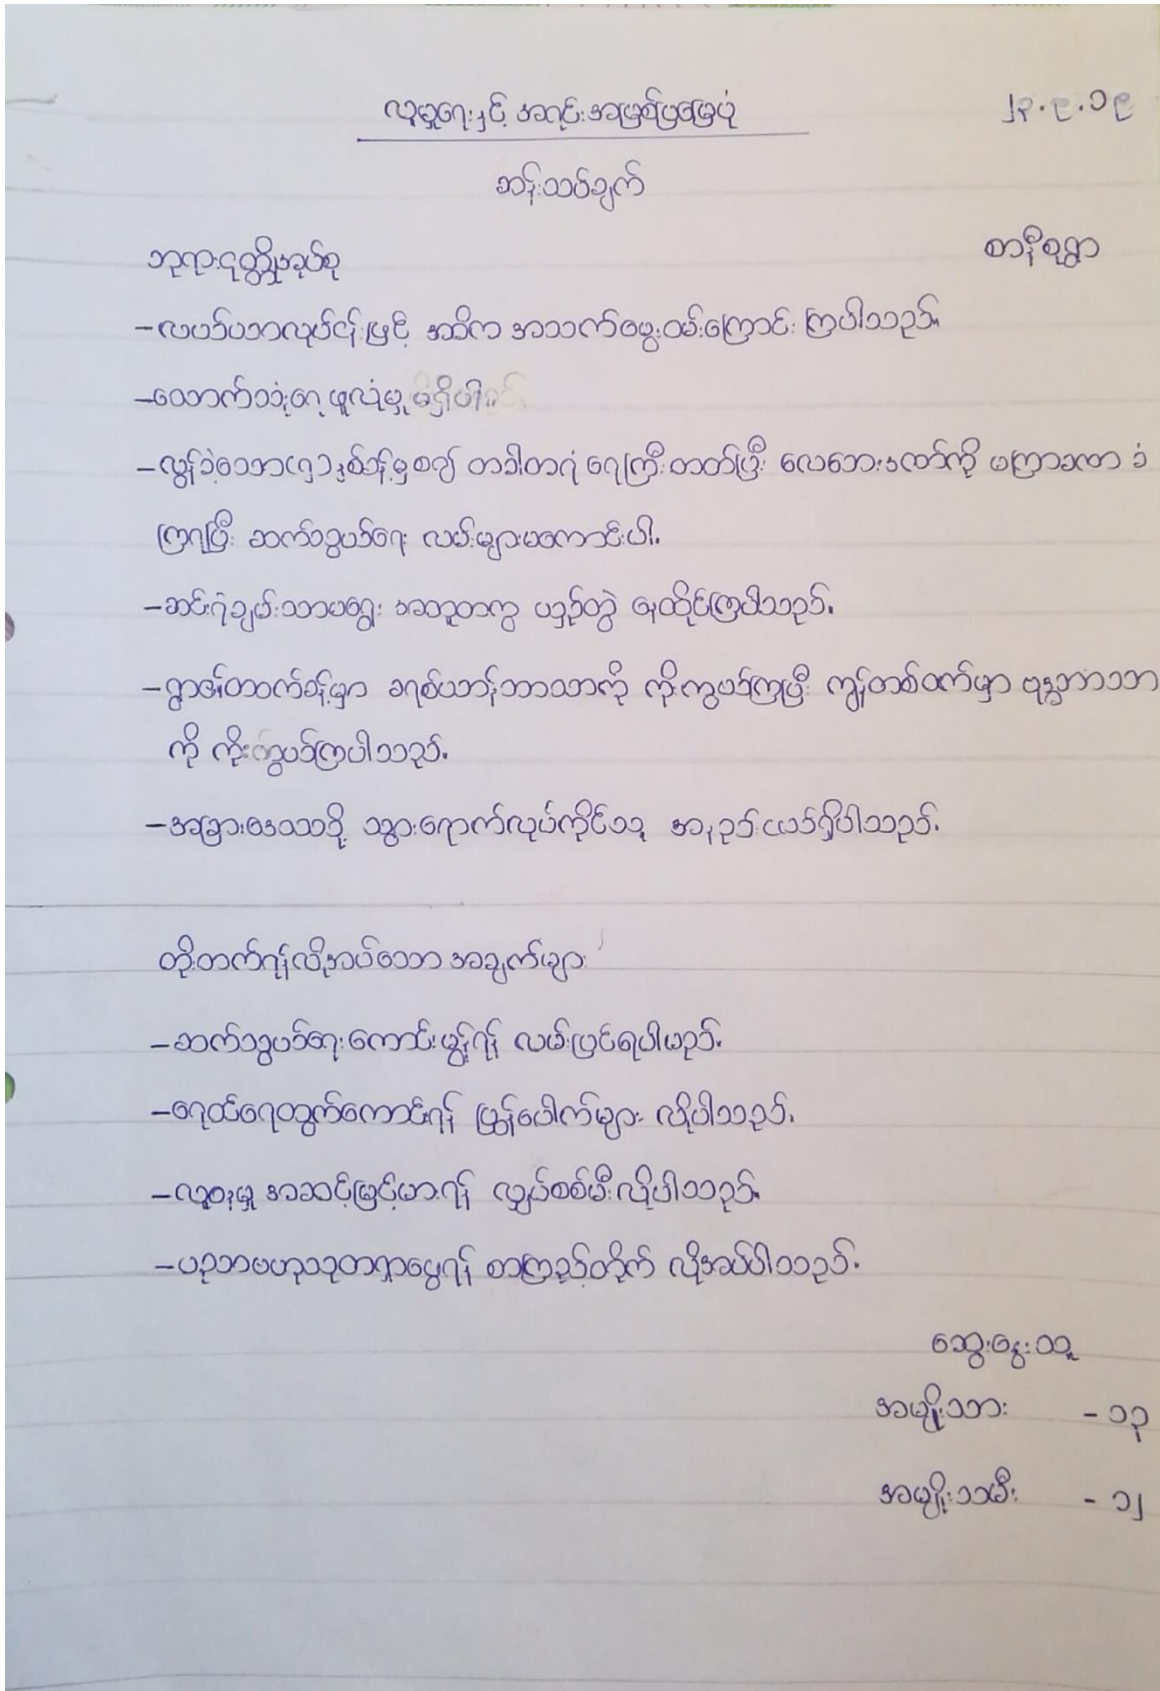 လူမှုရေးနှင့် အရင်းအမြစ်ပြမြေပုံ ၂၃.၉.၁၉
ဆန်းသပ်ချက်
ဘုရားငုတ္တိုအုပ်စု စာနီစုရွာ
-လယ်ယာလုပ်ငန်းဖြင့် အဓိက အသက်မွေးဝမ်းကြောင်း ကြပါသည်။
-သောက်သုံးရေ ဖူလုံမှု မရှိပါ။
-လွန်ခဲ့သော(၅)နှစ်ခန့်မှစ၍ တခါတရံ ရေကြီးတတ်ပြီး လေဘေးဒဏ်ကို မကြာခဏ ခံ
ကြရပြီး ဆက်သွယ်ရေး လမ်းများမကောင်းပါ.
-ဆင်းရဲချမ်းသာမရွေး အတူတကွ ယှဉ်တွဲ နေထိုင်ကြပါသည်.
-ရွာ၏တဝက်ခန့်မှာ ခရစ်ယာန်ဘာသာကို ကိုးကွယ်ကြပြီး ကျန်တစ်ဝက်မှာ ဗုဒ္ဓဘာသာ
ကို ကိုးကွယ်ကြပါသည်.
-အခြားဒေသသို့ သွားရောက်လုပ်ကိုင်သူ အနည်းငယ်ရှိပါသည်.
တိုးတက်ရန်လိုအပ်သော အချက်များ
-ဆက်သွယ်ရေးကောင်းမွန်ရန် လမ်းပြင်ရပါမည်.
-ရေထင်ရေထွက်ကောင်းရန် ပြွန်ပေါက်များ လိုပါသည်.
-လူနေမှု အဆင့်မြင့်မားရန် လျှပ်စစ်မီးလိုပါသည်.
-ပညာဗဟုသုတရှာမွေးရန် စာကြည့်တိုက် လိုအပ်ပါသည်.
ဆွေးနွေးသူ
အမျိုးသား - ၁၃
အမျိုးသမီး - ၁၂